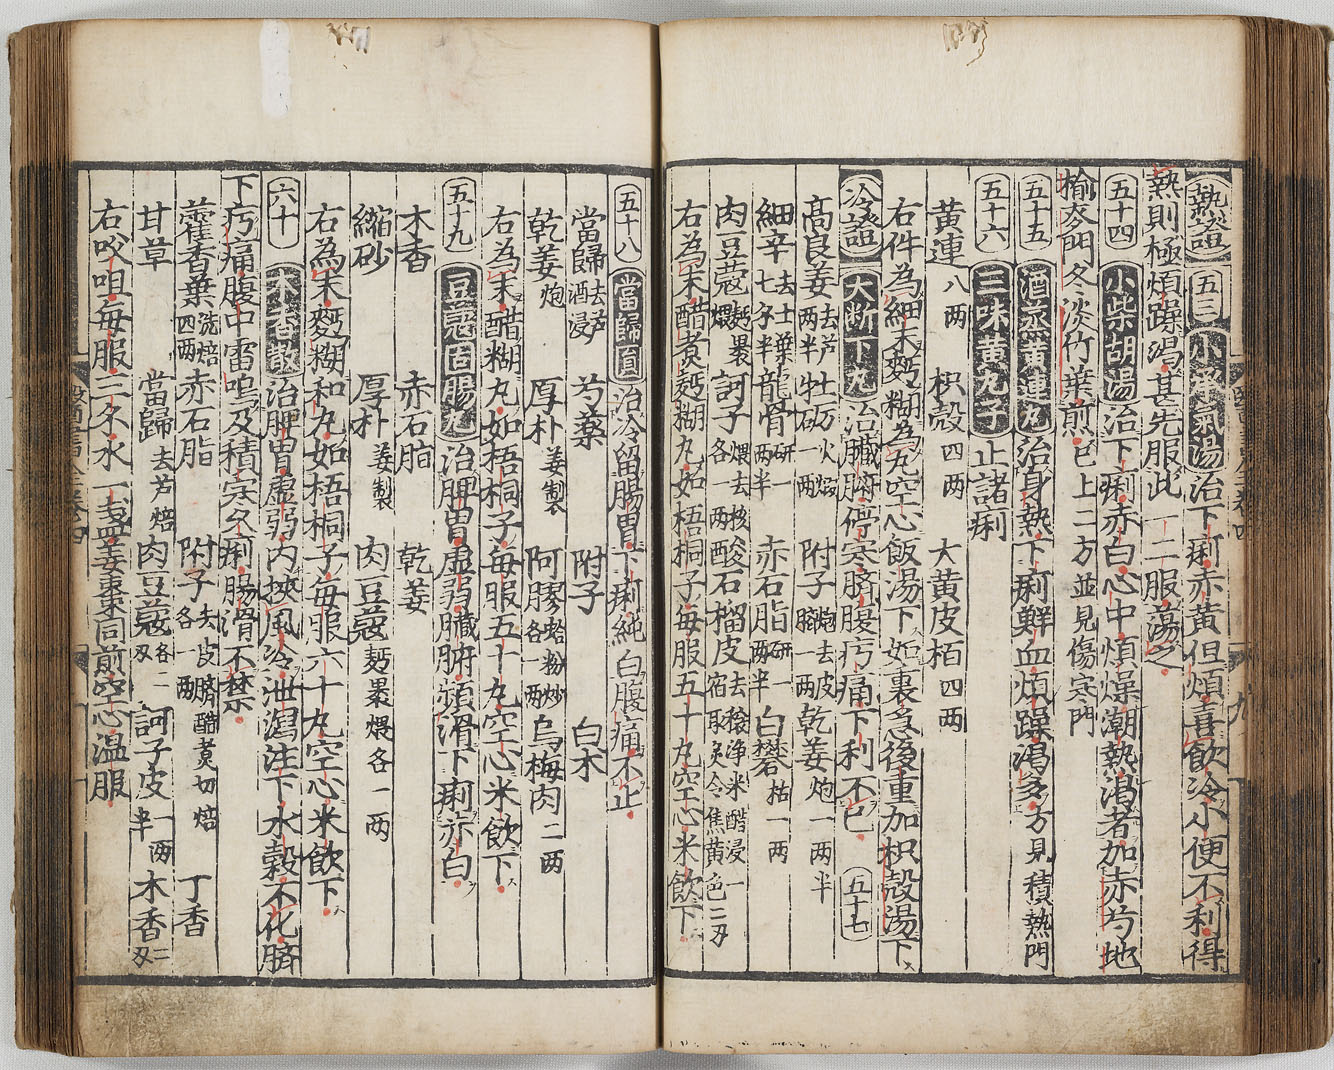 熱證 五三 小承氣湯 治下痢赤黃但煩喜飲冷小便不利得
熱則極煩躁渴甚先服此一二服蕩之
五十四 小柴胡湯 治下痢赤白心中煩燥潮熱渴者加赤芍地
榆麥門冬淡竹葉煎已上二方並見傷寒門
五十五 酒烝黃連丸 治身熱下痢鮮血煩躁渴多方見積熱門
五十六 三味黃丸子 止諸痢
黃連八兩 枳殼四兩 大黃皮栢四兩
右件為細末麪糊為丸空心飯湯下如裏急後重加枳殼湯下
冷證 大斷下丸 治臟腑停寒臍腹㽲痛下利不已 五十七
高良姜去芦一兩半 牡砺火煅一兩 附子炮去皮臍一兩 乾姜炮一兩半
細辛去土葉七夕半 龍骨研一兩半 赤石脂研一兩半 白礬枯一兩
肉豆蔻麪裹煨 訶子煨去核各一兩 酸石榴皮去穣淨米醋浸一宿取炙令焦黃色二刄
右為末醋煮麪糊丸如梧桐子每服五十丸空心米飲下
五十八 當歸圓 治冷留腸胃下痢純白腹痛不止
當歸去芦酒浸 芍藥 附子 白朮
乾姜炮 厚朴姜製 阿膠蛤粉炒各一兩 烏梅肉二兩
右為末醋糊丸如梧桐子每服五十丸空心米飲下
五十九 豆蔻固腸丸 治脾胃虛弱臟腑頻滑下痢赤白
木香 赤石脂 乾姜
縮砂 厚朴姜製 肉豆蔻麪裹煨各一兩
右為末麪糊和丸如梧桐子每服六十丸空心米飲下
六十 木香散 治脾胃虛弱內挾風冷泄瀉注下水穀不化臍
下㽲痛腹中雷鳴及積寒久痢腸滑不禁
藿香葉洗焙四兩 赤石脂 附子去皮臍醋煮切焙各一兩 丁香
甘草 當歸去芦焙 肉豆蔻各二刄 訶子皮一兩半 木香二刄
右㕮咀每服三夕水一盞姜棗同煎空心溫服